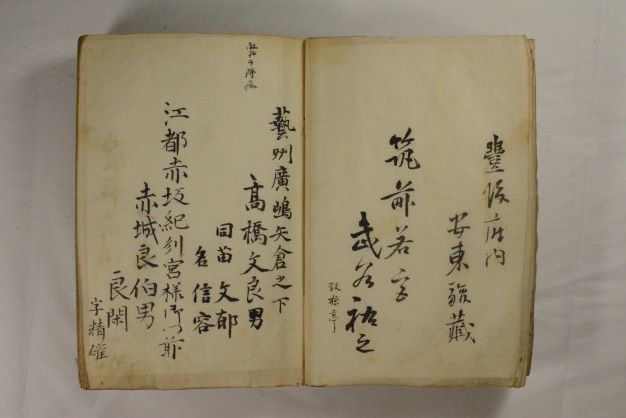 豊後府内
安東
筑前若宮
武谷祐之
藝州廣嶋矢倉之下
髙橋文良男
同苗文郁
名信容
江都赤坂紀刕宮様御門前
赤城良伯男
良閑
字精確